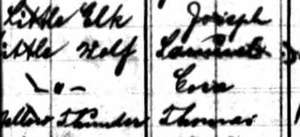 Little Elk Joseph
ittle Wolf Samuel
" Cora
ellow Thunder Thomas